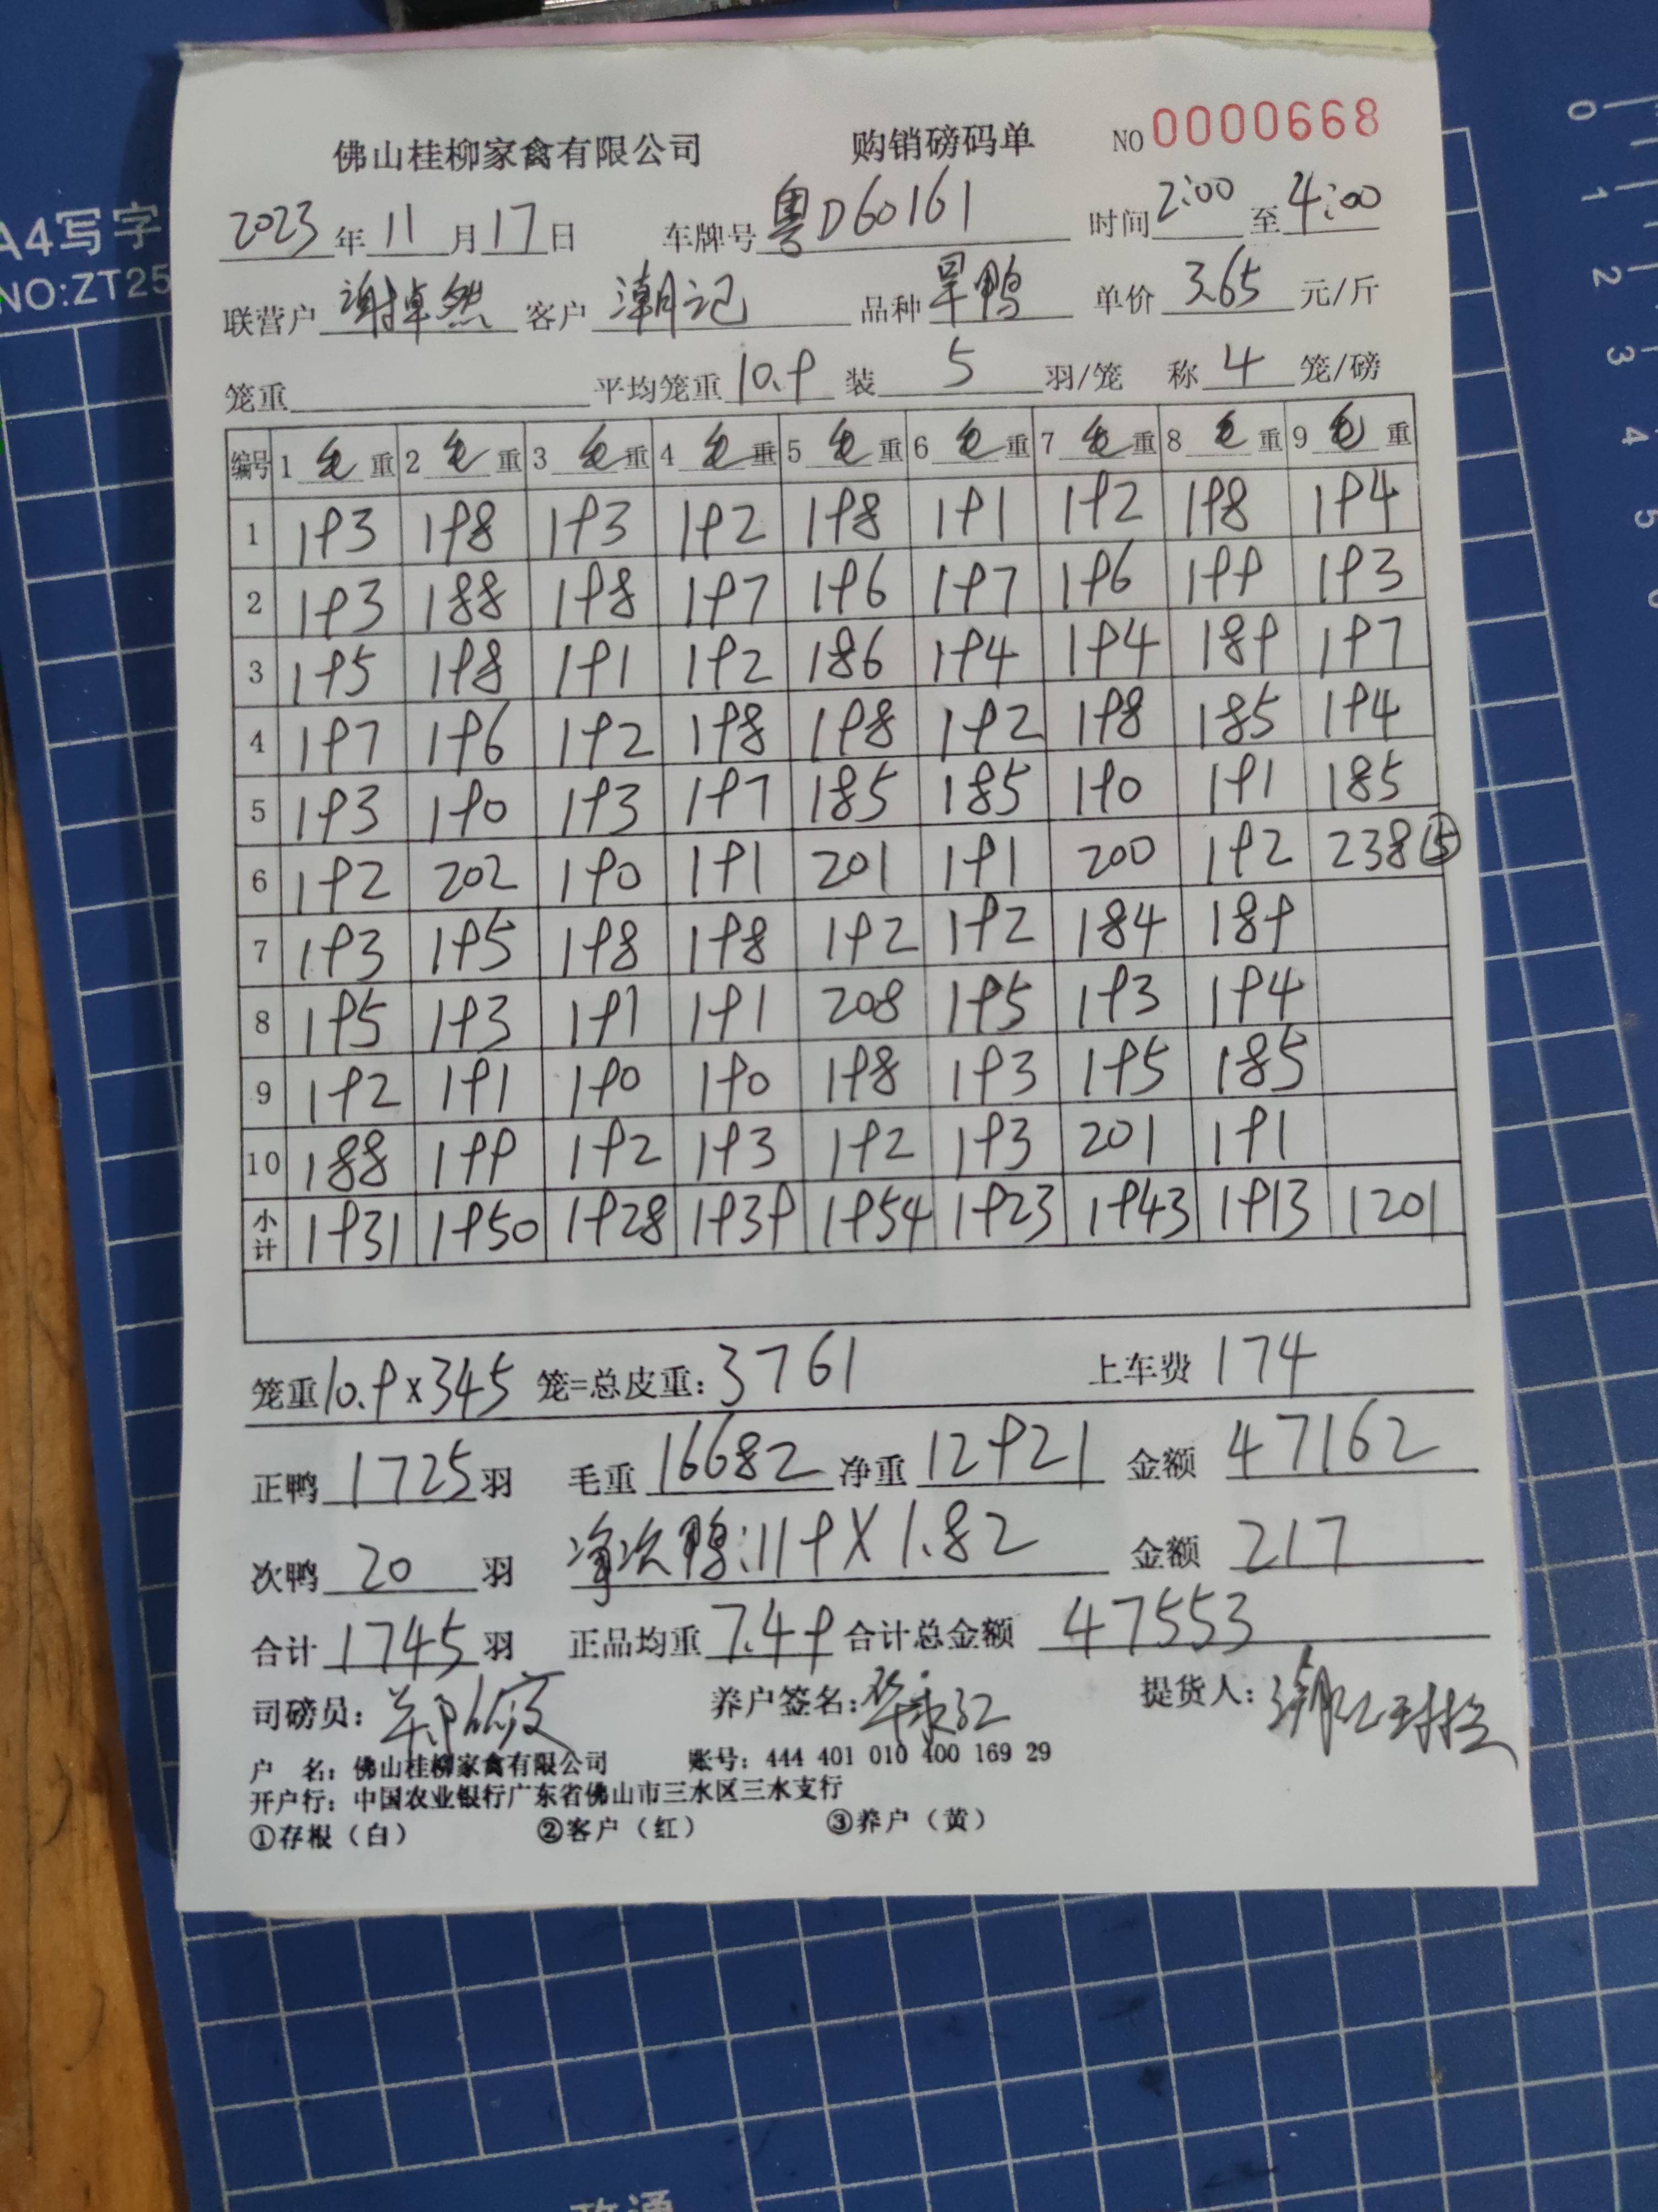 佛山桂柳家禽有限公司 购销磅码单 NO 0000668
2023年11月17日 车牌号 粤D60161 时间 2:00 至 4:00
联营户 谢掉然 客户 潮记 品种 旱鸭 单价 3.65 元/斤
笼重 平均笼重 10.9 装 5 羽/笼 称 4 笼/磅
编号 1 毛重 2 毛重 3 毛重 4 毛重 5 毛重 6 毛重 7 毛重 8 毛重 9 毛重
1 193 198 193 192 198 191 192 198 194
2 193 188 198 197 196 197 196 199 193
3 195 198 191 192 186 194 194 189 197
4 197 196 192 198 198 192 198 185 194
5 193 190 193 197 185 185 190 191 185
6 192 202 190 191 201 191 200 192 238 ⑤
7 193 195 198 198 192 192 184 189
8 195 193 191 191 208 195 193 194
9 192 191 190 190 198 193 195 185
10 188 199 192 193 192 193 201 191
小计 1931 1950 1928 1939 1954 1923 1943 1913 1201
笼重 10.9 x 345 笼=总皮重: 3761 上车费 174
正鸭 1725 羽 毛重 16682 净重 12921 金额 47162
次鸭 20 羽 净次鸭: 119 X 1.82 金额 217
合计 1745 羽 正品均重 7.49 合计总金额 47553
司磅员: 养户签名: 提货人:
户 名: 佛山桂柳家禽有限公司 账号: 444 401 010 400 169 29
开户行: 中国农业银行广东省佛山市三水区三水支行
①存根（白） ②客户（红） ③养户（黄）
A4写字
NO:ZT25
0
1
2
3
4
5